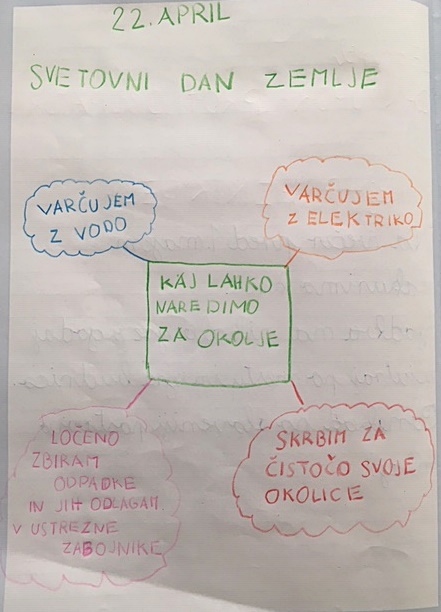 22. APRIL
SVETOVNI DAN ZEMLJE
VARČUJEM
Z VODO
VARČUJEM
Z ELEKTRIKO
KAJ LAHKO
NAREDIMO
ZA OKOLJE
LOČENO
ZBIRAM
ODPADKE
IN JIH ODLAGAM
V USTREZNE
ZABOJNIKE
SKRBIM ZA
ČISTOČO SVOJE
OKOLICE